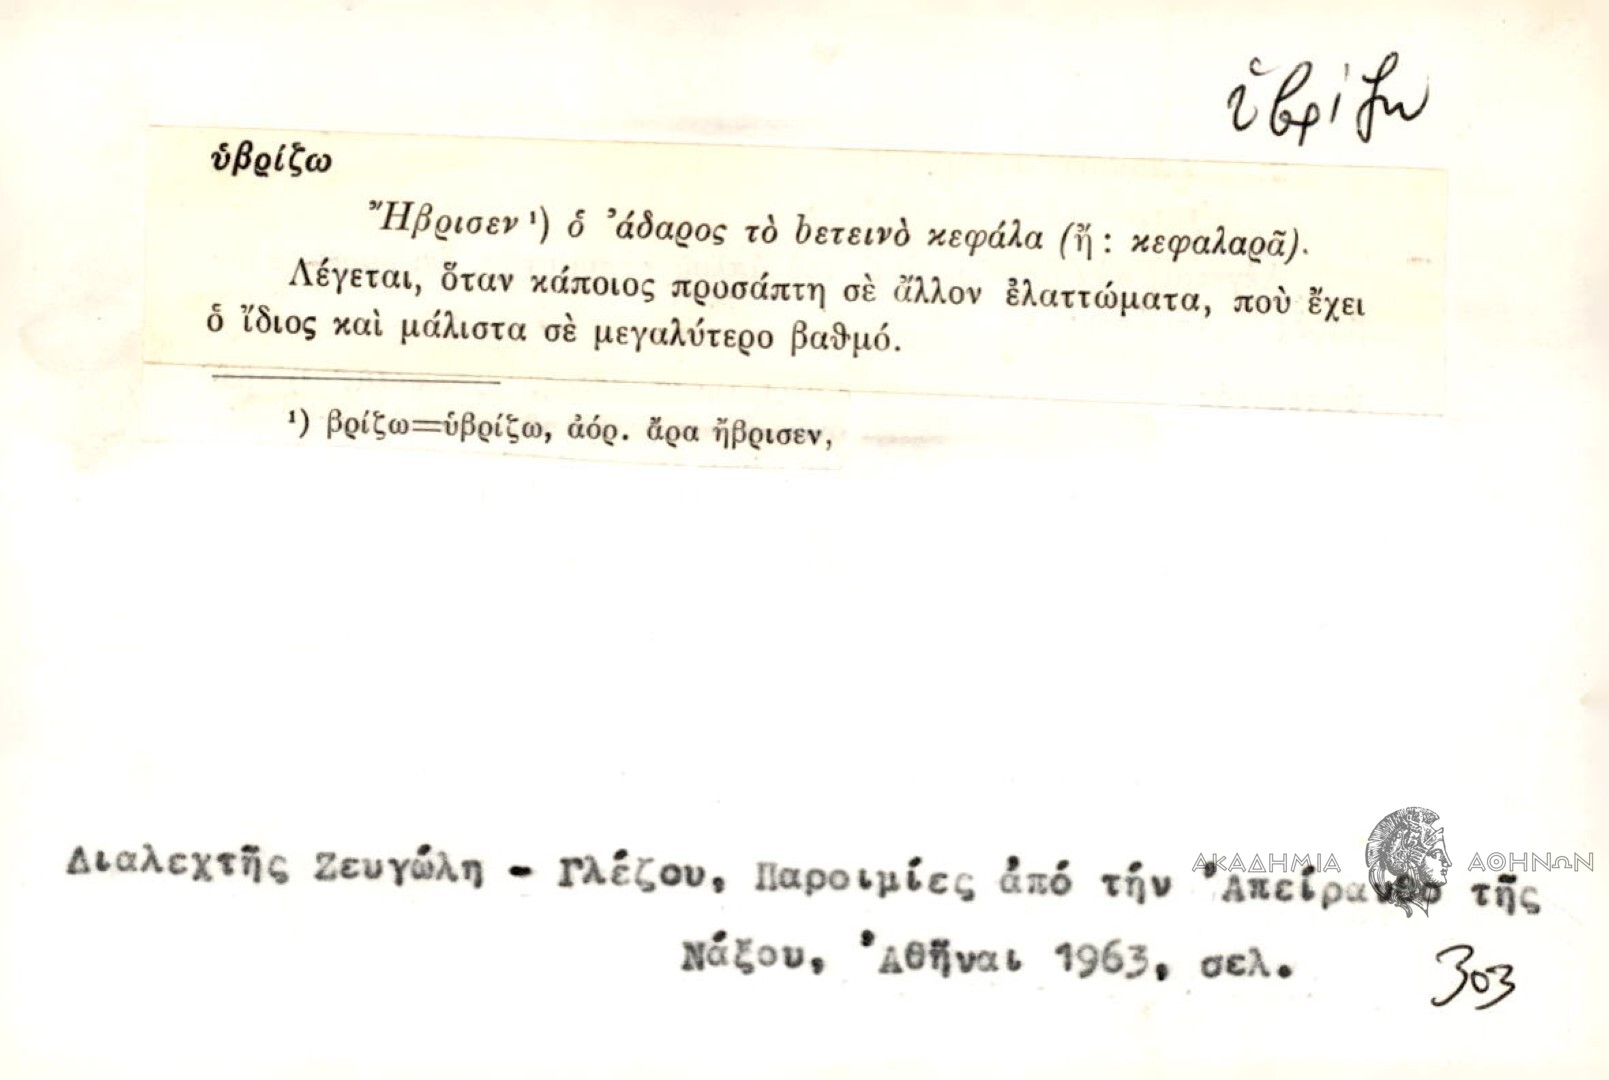 ὑβρίζω
ὑβρίζω
Ἤβρισεν ¹) ὁ ᾿άδαρος τὸ bετεινὸ κεφάλα (ἤ : κεφαλαρᾶ).
Λέγεται, ὅταν κάποιος προσάπτη σὲ ἄλλον ἐλαττώματα, ποὺ ἔχει
ὁ ἴδιος καὶ μάλιστα σὲ μεγαλύτερο βαθμό.
¹) βρίζω=ὑβρίζω, ἀόρ. ἄρα ἤβρισεν,
ΑΚΑΔΗΜΙΑ ΑΘΗΝΩΝ
Διαλεχτῆς Ζευγώλη - Γλέζου, Παροιμίες ἀπό τήν Ἀπείρανθο τῆς
Νάξου, Ἀθῆναι 1963, σελ. 303